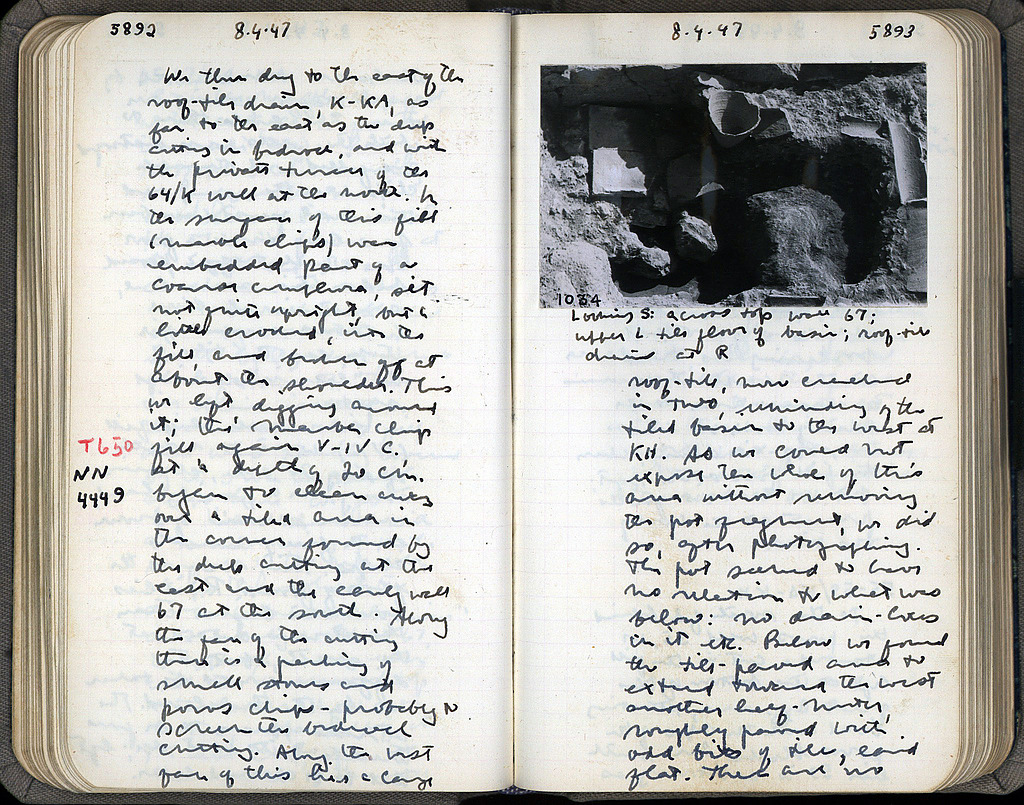 5892 8.4.47
We then dug to the east of the
roof-tile drain, K-KA, as
far to the east as the deep
cutting in bedrock, and with
the private terrace of the
64/K wall at the north. In
the surface of this fill
(marble chips) was
embedded part of a
coarse amphora, set
not quite upright, but a
little crooked, into the
fill, and broken off at
about the shoulder. This
we left digging around
it; the marble chip
fill again V-IV C.
T650
NN
4449
At a depth of 20 cm.
began to clean away
over a tiled area in
the corner formed by
the deep cutting at the
east and the early wall
67 at the south. Along
the face of the cutting
there is a packing of
small stones and
poros chips - probably to
screen the bedrock
cutting. Along the west
face of this lies a large
8.4.47 5893
1034
Looking S: across top wall 67;
upper L tile floor of basin; roof-tile
drain at R
roof-tile, now cracked
in two, reminding of the
tiled basin to the west at
KH. As we could not
expose the whole of this
area without removing
the pot fragment, we did
so, after photographing.
The pot seemed to have
no relation to what was
below: no drain-holes
in it etc. Below we found
the tile-paved area to
extend toward the west
another half-meter,
roughly paved with
odd bits of tile, laid
flat. There are no